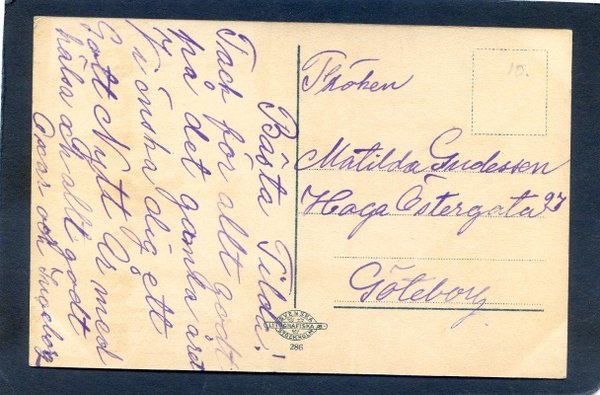 Bästa Tilda!
Tack för allt godt
på det gamla året
Vi önska dig ett
Gott Nytt År med
hälsa och allt godt
Oscar och Ingeborg
Fröken
Matilda Gudessen
Haga Östergata 27
Göteborg
10.
SVENSKA
LITOGRAFISKA AB
STOCKHOLM
286